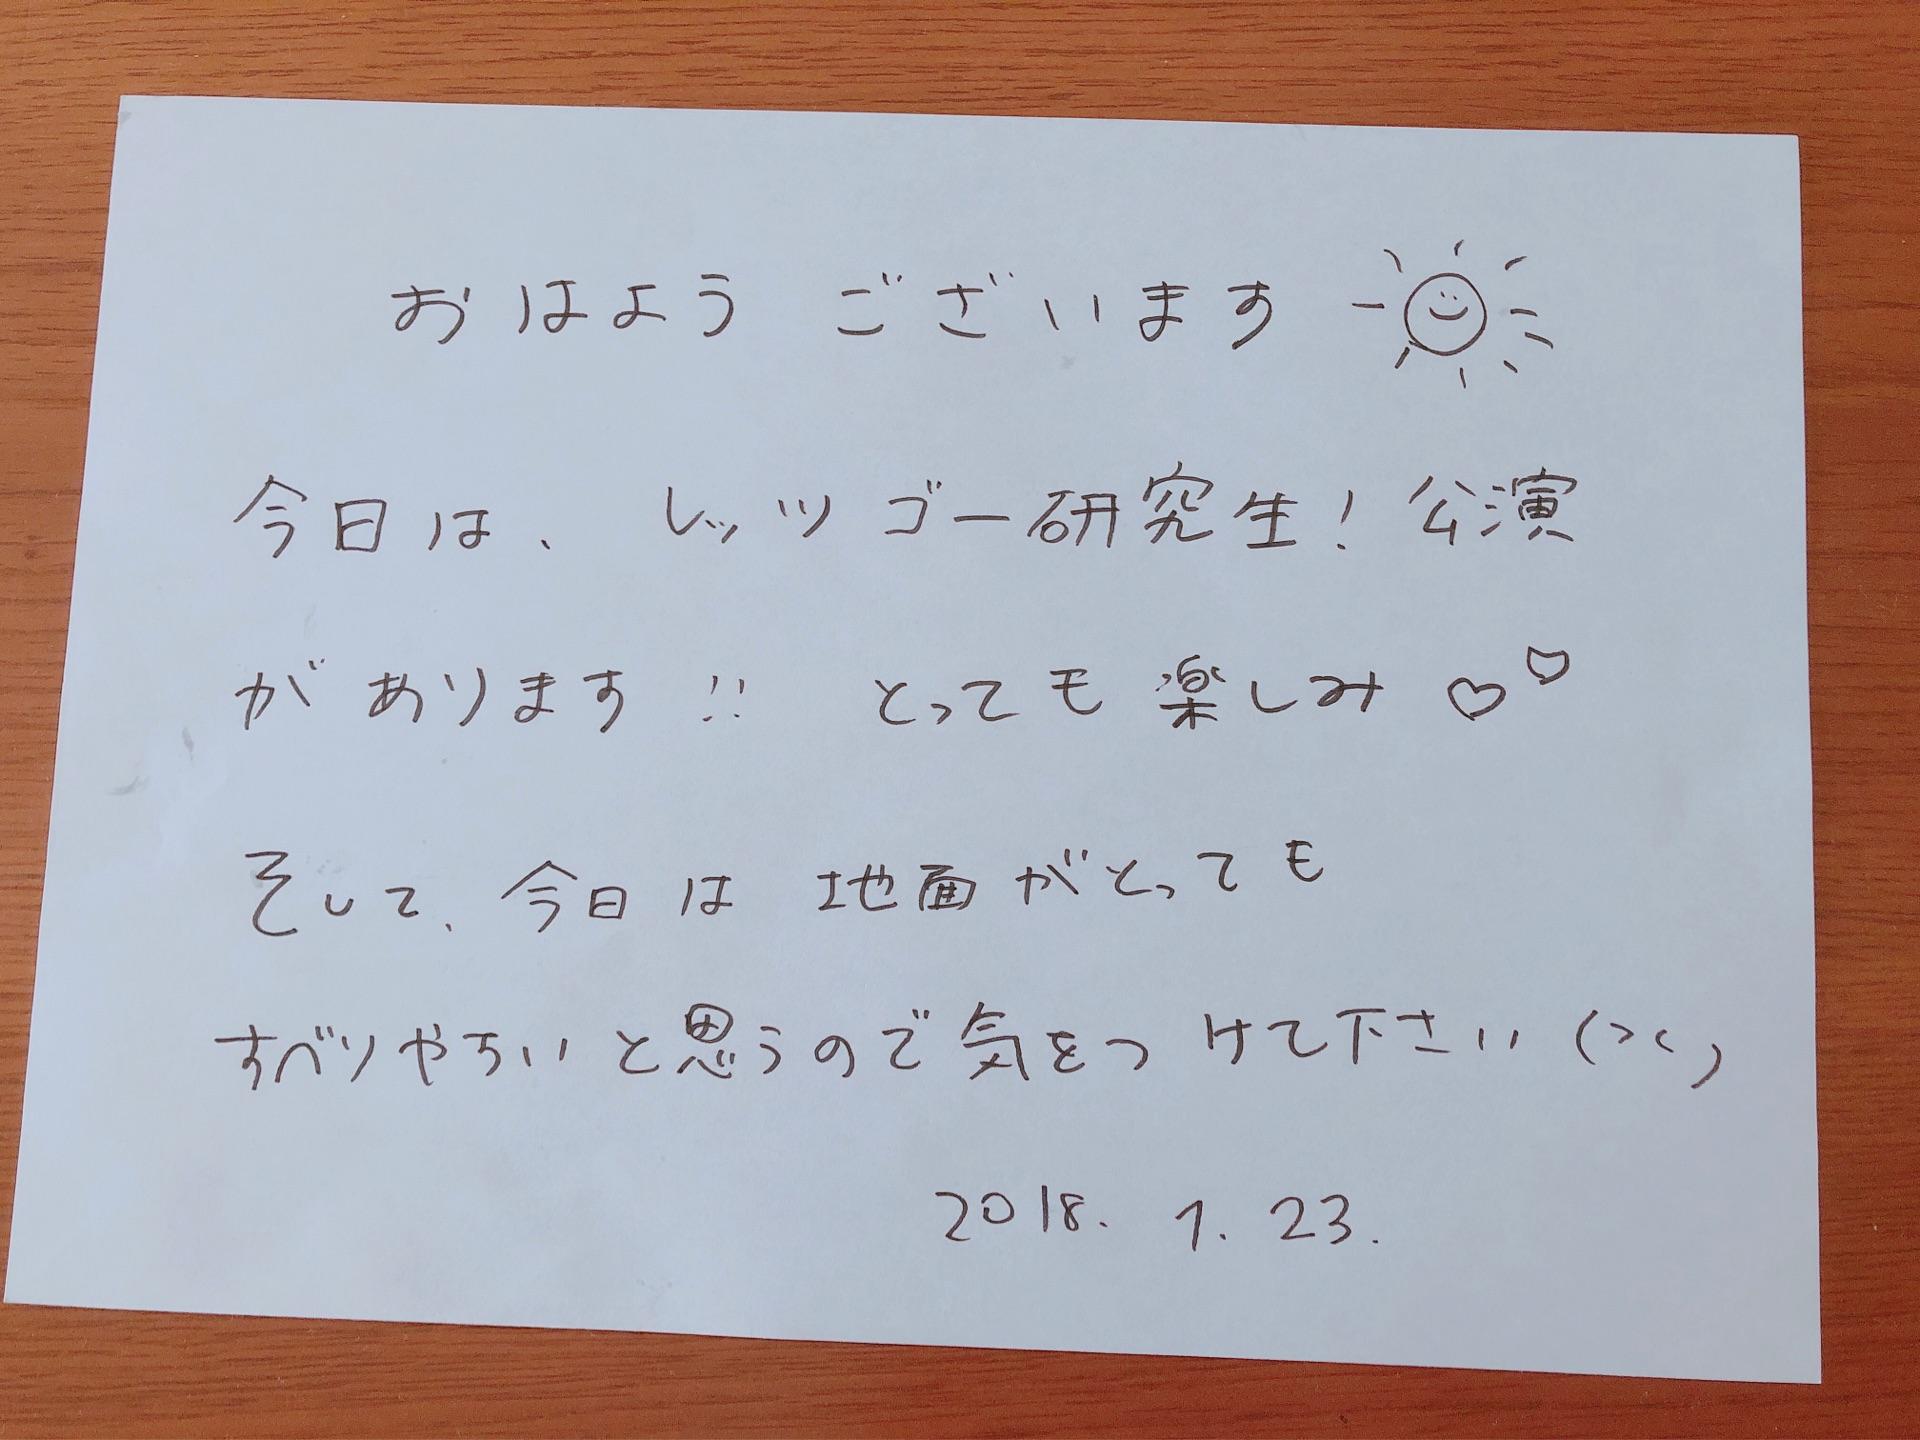 おはよう ございます
今日は、 レッツゴー研究生! 公演
があります!! とっても楽しみ♡♡
そして、今日は 地面がとっても
すべりやすいと思うので気をつけて下さい (><)
2018. 1. 23.